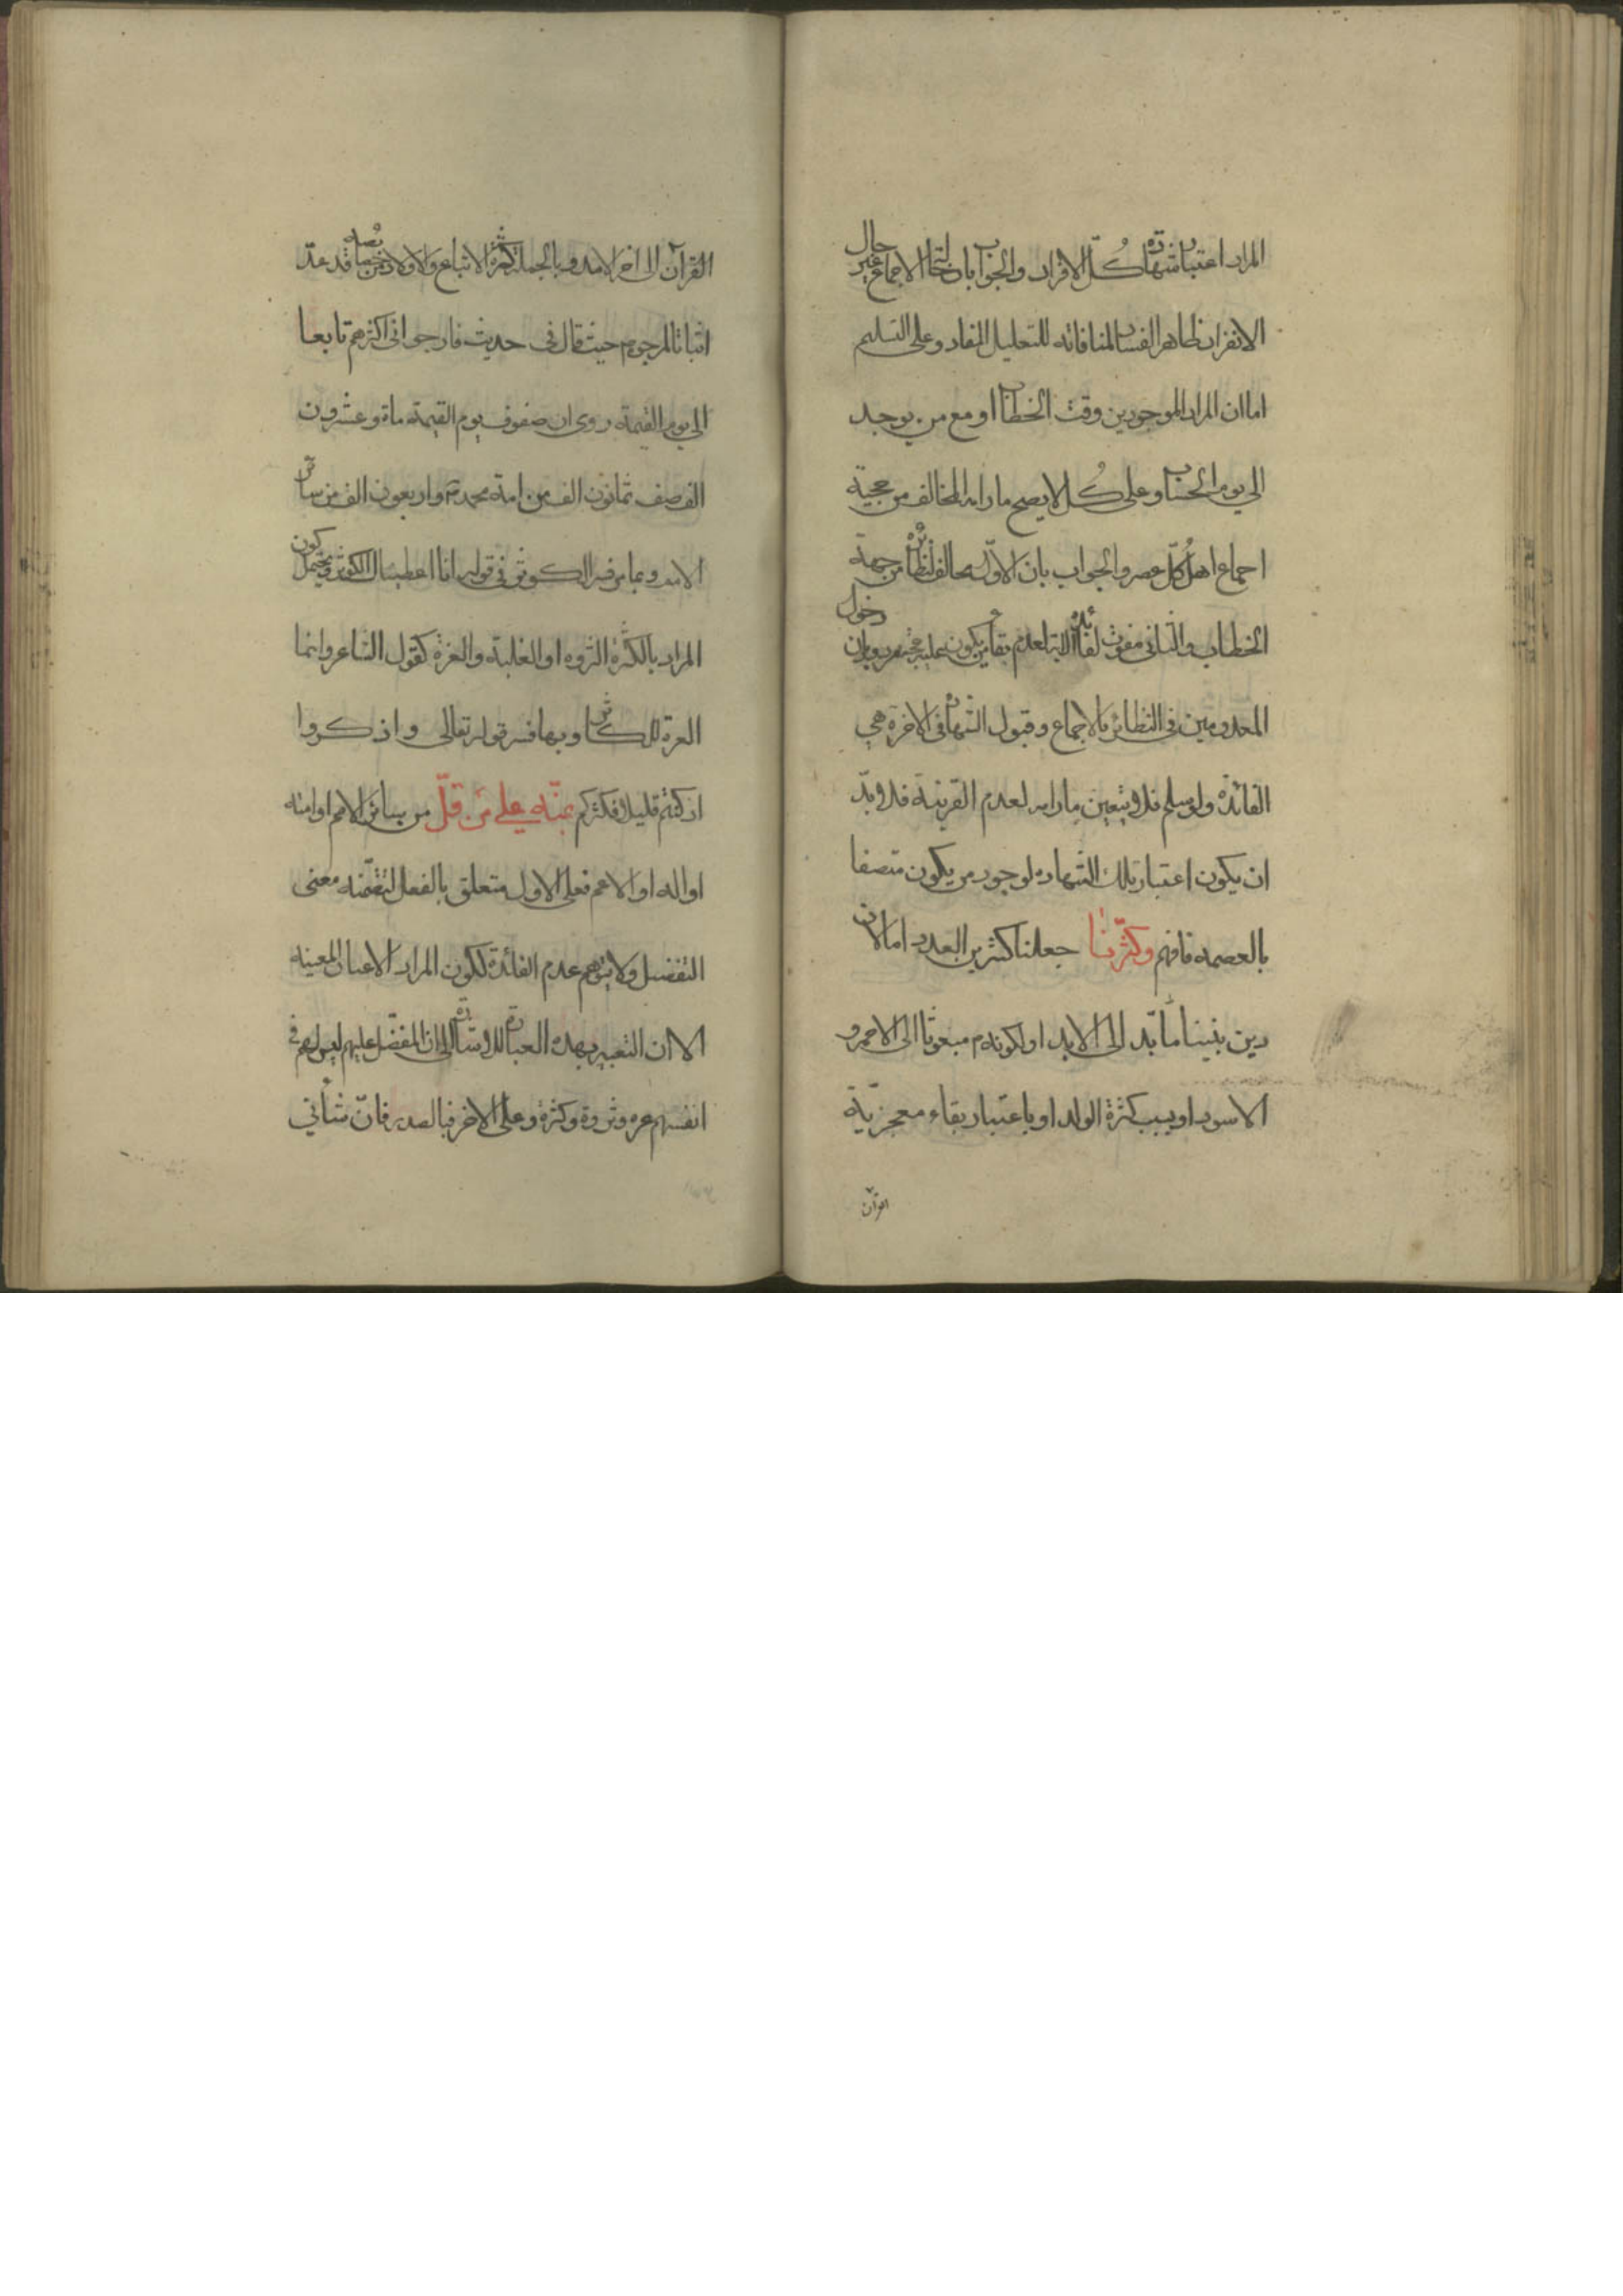 المراد اعتبار شهادة كلّ الافراد والجواب بان التحاد الاجماع غير حال
الانفراد ظاهر الفساد لمنافاته للتعليل المفاد وعلى التسليم
اما ان المراد الموجودين وقت الخطاب او مع من يوجد
الى يوم الحساب وعلى كُل لا يصح ما رامه المخالف من حجية
اجماع اهل كُلّ عصر والجواب بان الاوّل مخالف لنظائره من جهة
الخطاب والثانى مفوت لفائدة الاية لعدم بقاء من يكون عليه حجة مردود بان دخول
المعدومين فى النظائر بالاجماع وقبول الشهادة فى الاخرة هي
الفائدة ولو سلم فلا يتعين ما رامه لعدم القرينة فلا بدّ
ان يكون اعتبار تلك الشهاده لوجود من يكون متصفا
بالعصمه فافهم وكثّرنا جعلنا كثيرين العدد اما لان
دين نبينا مأبّد الى الابد او لكونه م مبعوثا الى الاحمر و
الاسود او بسبب كثرة الولد او باعتبار بقاء معجزيّة
القرآن
القرآن الى اخر الامد وبالجملة كثرة الاتباع والاولاد من خصايصه قد عدّ
اثباتا لمرجوه حيث قال فى حديث فارجو انى اكثرهم تابعا
الى يوم القيمة روى ان صفوف يوم القيمة ماة وعشرون
الف صف ثمانون الف من امة محمد م واربعون الف من سائر
الامم وبها فسر الكوثر فى قوله انا اعطيناك الكوثر ويحتمل كون
المراد بالكثرة الثروه او الغلبة والعزة كقول الشاعر وانما
العزة للكاثر وبها فسر قوله تعالى واذكروا
اذ كنتم قليلا فكثركم بمنّه على من قلّ من سائر الامم او امته
او اله او الاعم فعلى الاول متعلق بالفعل لتضمّنه معنى
التفضيل ولا يتوهم عدم الفائدة لكون المراد الاعيان المعينه
الا ان التعبير بهذه العبارة للاشارة الى ان المفضّل عليهم ليس لهم فى
انفسهم عزه وثروة وكثرة وعلى الاخر فبالصدر فانّ شأنى